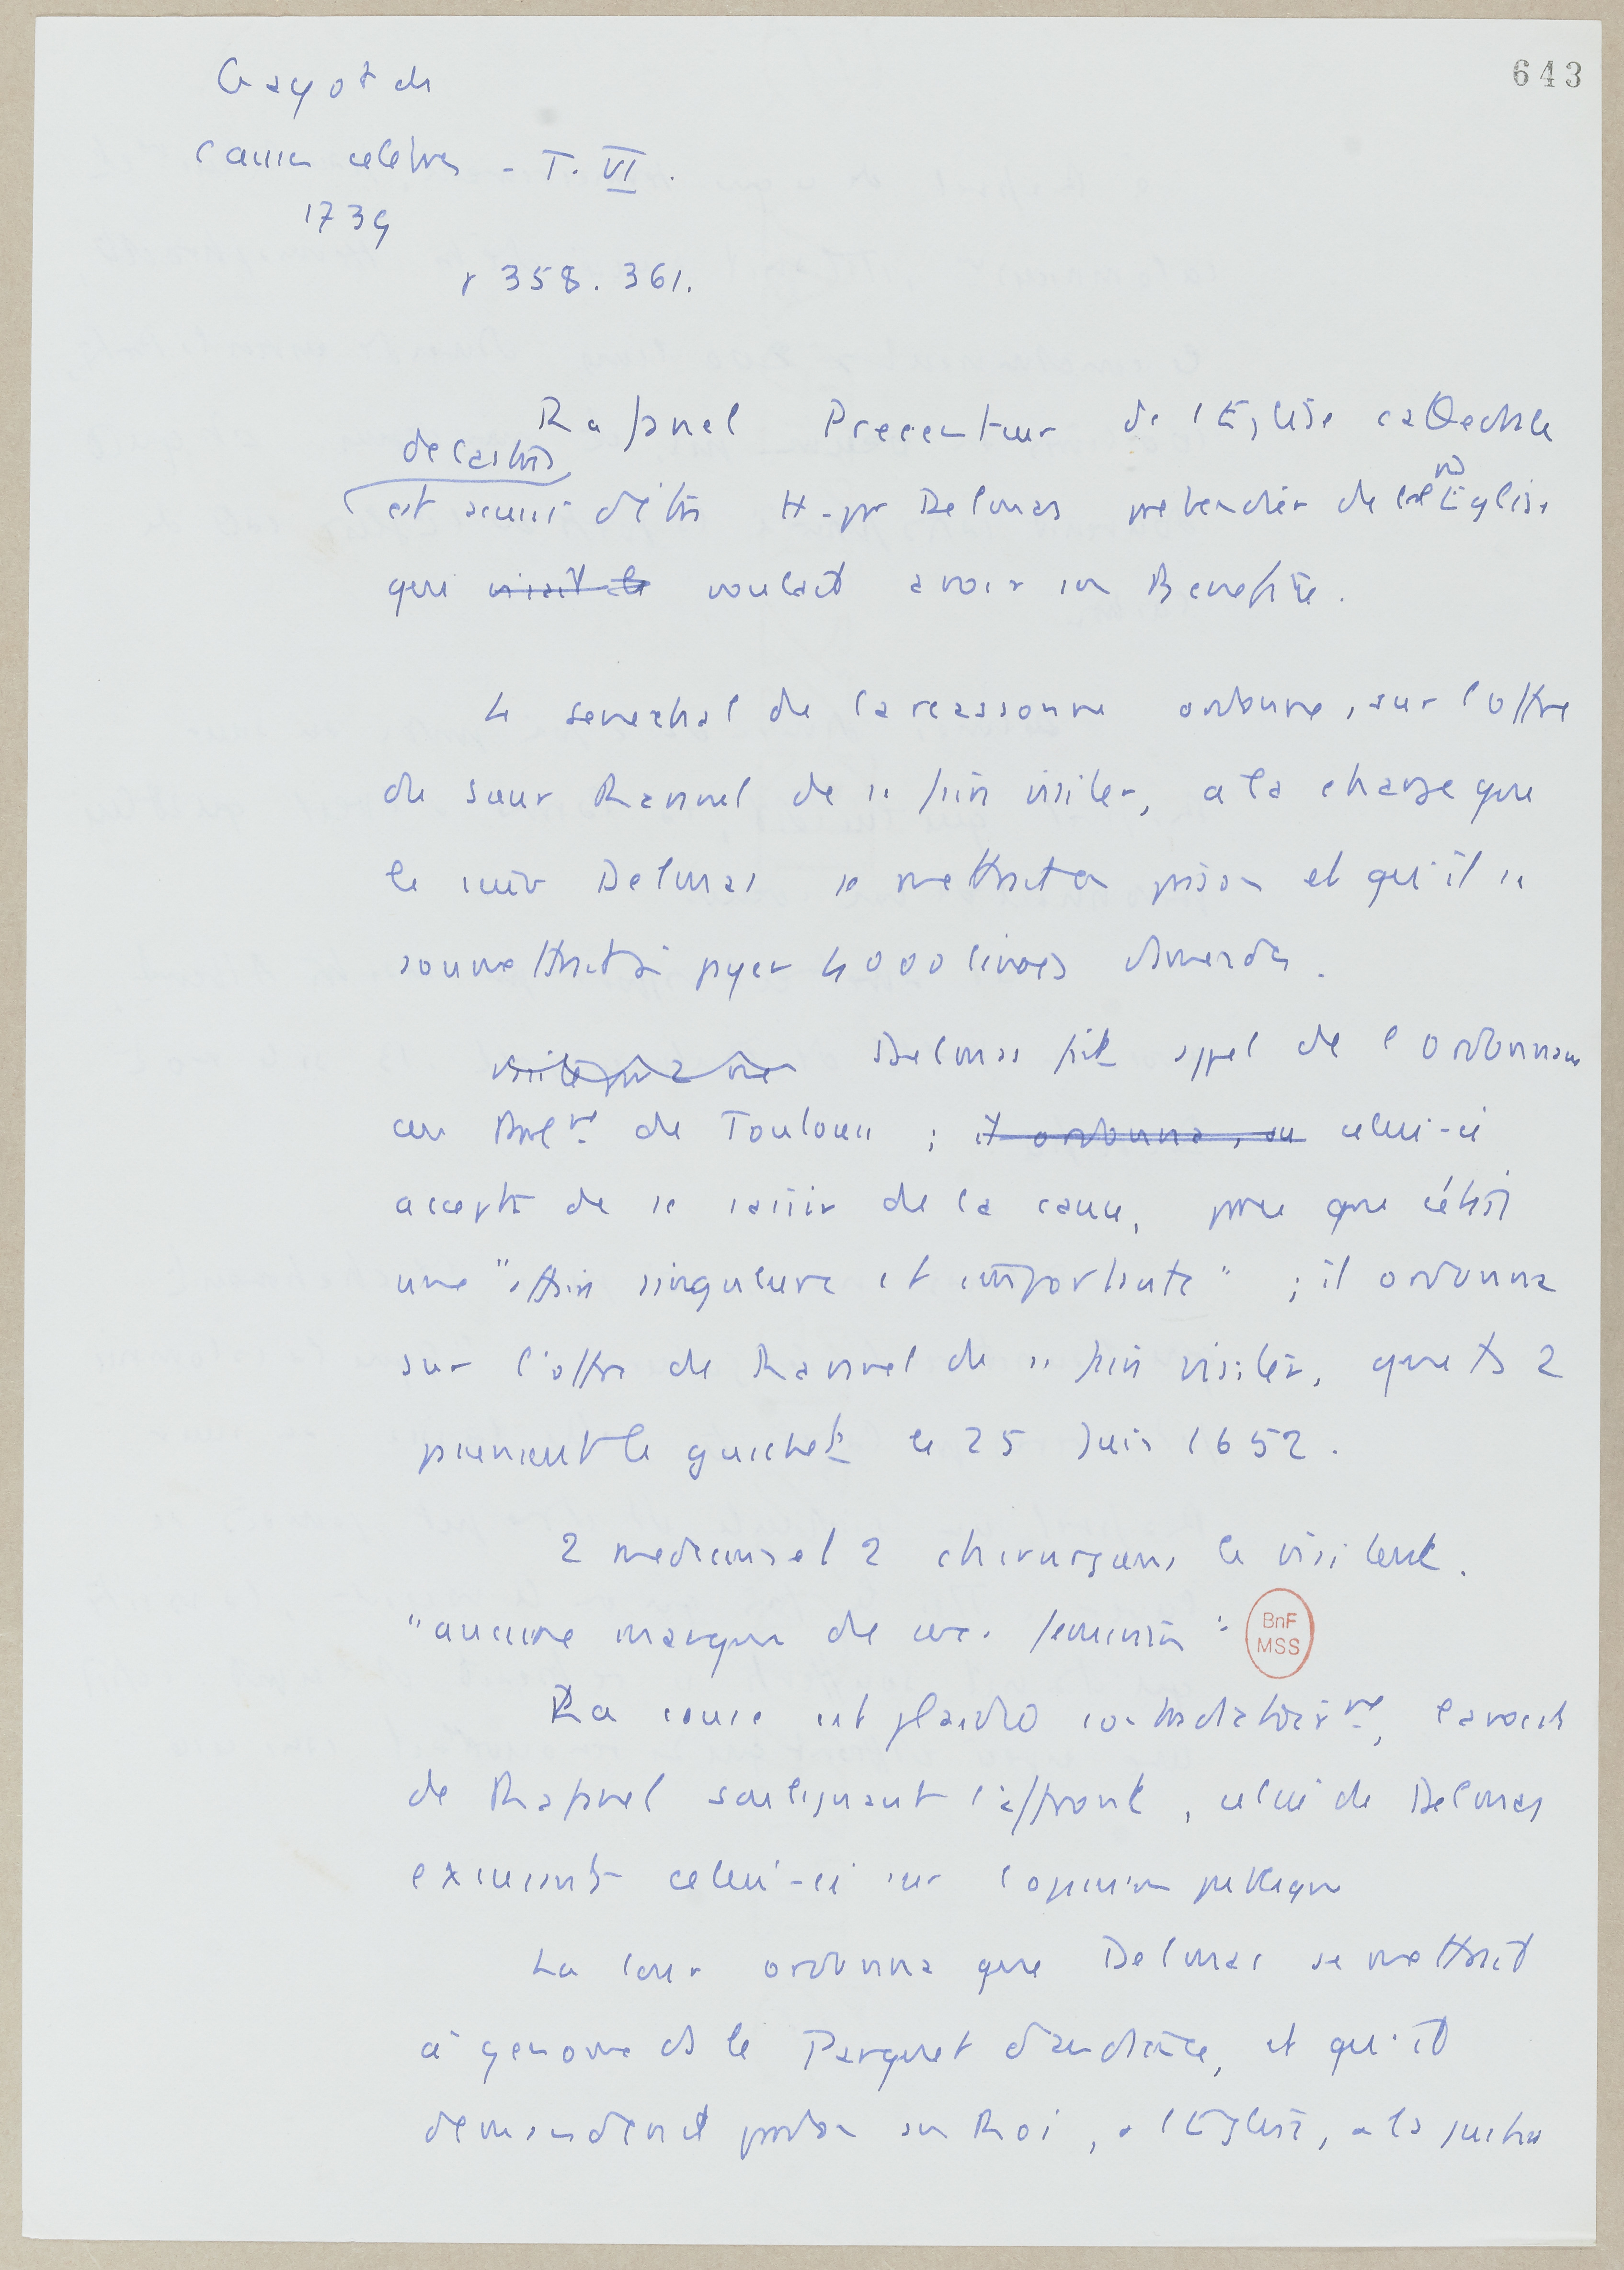 643
Gayot de
Causes celebres - T. VI.
1739
p 358. 361.
Rapinel Precenteur de l'Eglise cathedrale
de Castres
est accusé d'être H-ε par Delmas prebendier de lad Eglise
qui visait le voulait avoir son Benefice.
Le senechal de Carcassonne ordonne, sur l'offre
du sieur Rapinel de se faire visiter, à la charge que
le sieur Delmas se mettrait en prison et qu'il se
soumettrait à payer 4000 livres d'amende.
Delmas fit appel de l'ordonnance
au Parlt de Toulouse ; il ordonna, su celui-ci
accepta de se saisir de la cause, parce que c'était
une "affaire singuliere et importante" ; il ordonna
sur l'offre de Rapinel de se faire visiter, que ts 2
prennent le guichet le 25 Juin 1652.
2 medecins et 2 chirurgiens le visitent.
"aucune marque de sexe feminin"
BnF
MSS
La cause est plaidée contradictoiremt, l'avocat
de Rapinel soulignant l'affront, celui de Delmas
excusant celui-ci sur l'opinion publique
La Cour ordonna que Delmas se mettrait
à genoux ds le Parquet d'audience, et qu'il
demanderait pardon au Roi, à l'Eglise, à la justice